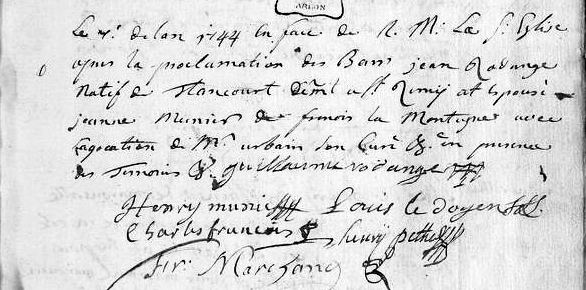 ARLON
Le 7e. de lan 1744 en face de N. M. La Ste Eglise
apres la proclamation des Bans jean Rodange
Natif de Hancourt à St Remij at Epousé
jeanne Munier de frenois la Montagne avec
de Mr. urbain son Curé &. en presence
des Temoins &. guillaume rodange
Henry munier Louis le doyen
Charles francois henry pethe
Marchand